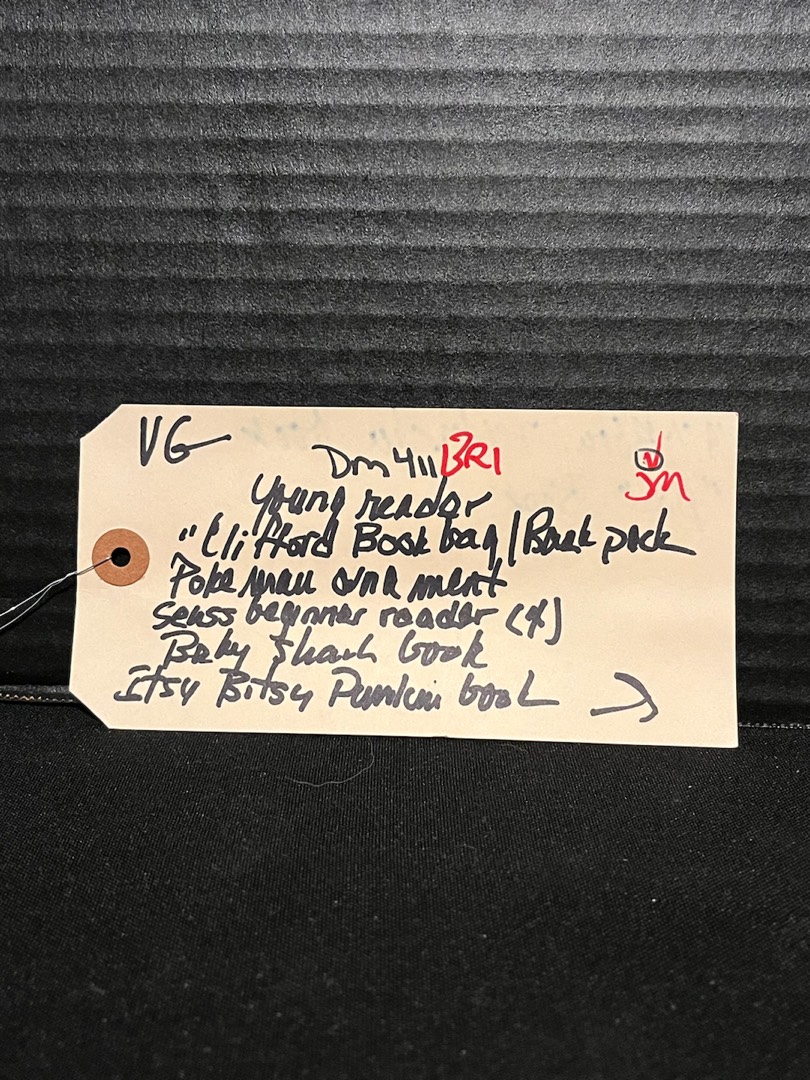 VG
Dm411 BRI
JM
Young reader
"Clifford Book bag/Back pack
Pokeman ornament
Seuss beginner reader (4)
Baby Shark book
Itsy Bitsy Pumkin book →